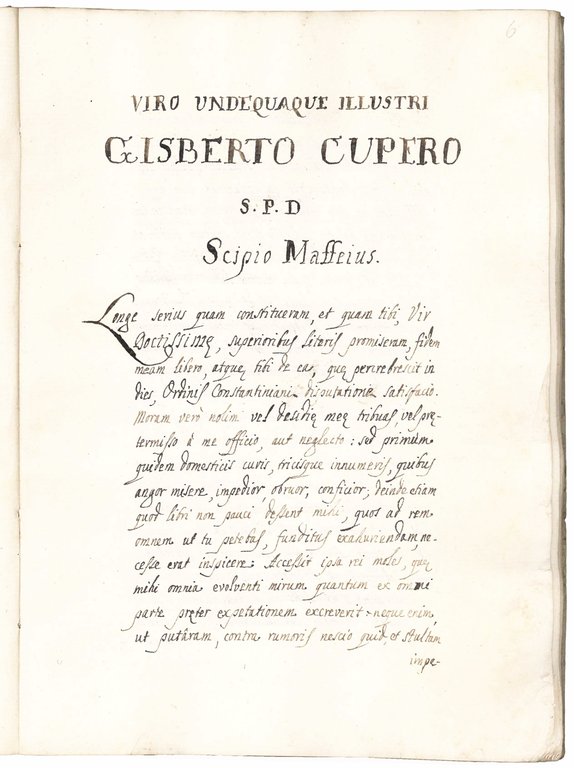 6
VIRO UNDEQUAQUE ILLUSTRI
GISBERTO CUPERO
S. P. D
Scipio Maffeius.
Longe serius quam constitueram, et quam tibi, Vir
Doctissimę, superioribus literis promiseram, fidem
meam libero, atque tibi de ea, quę percrebrescit in
dies, Ordinis Constantiniani disputatione satisfacio.
Moram verò nolim vel desidię meę tribuas, vel prę-
termisso à me officio, aut neglecto: sed primum
quidem domesticis curis, tricisque innumeris, quibus
angor misere, impedior, obruor, conficior; deinde etiam
quod libri non pauci deessent mihi, quos ad rem
omnem ut tu petebas, funditus exahuriendam, ne-
cesse erat inspicere; Accessit ipsa rei moles, quę
mihi omnia evolventi mirum quantum ex omni
parte pręter expetationem excreverit: neque enim,
ut putâram, contra rumoris nescio quid, et stultam
impe-